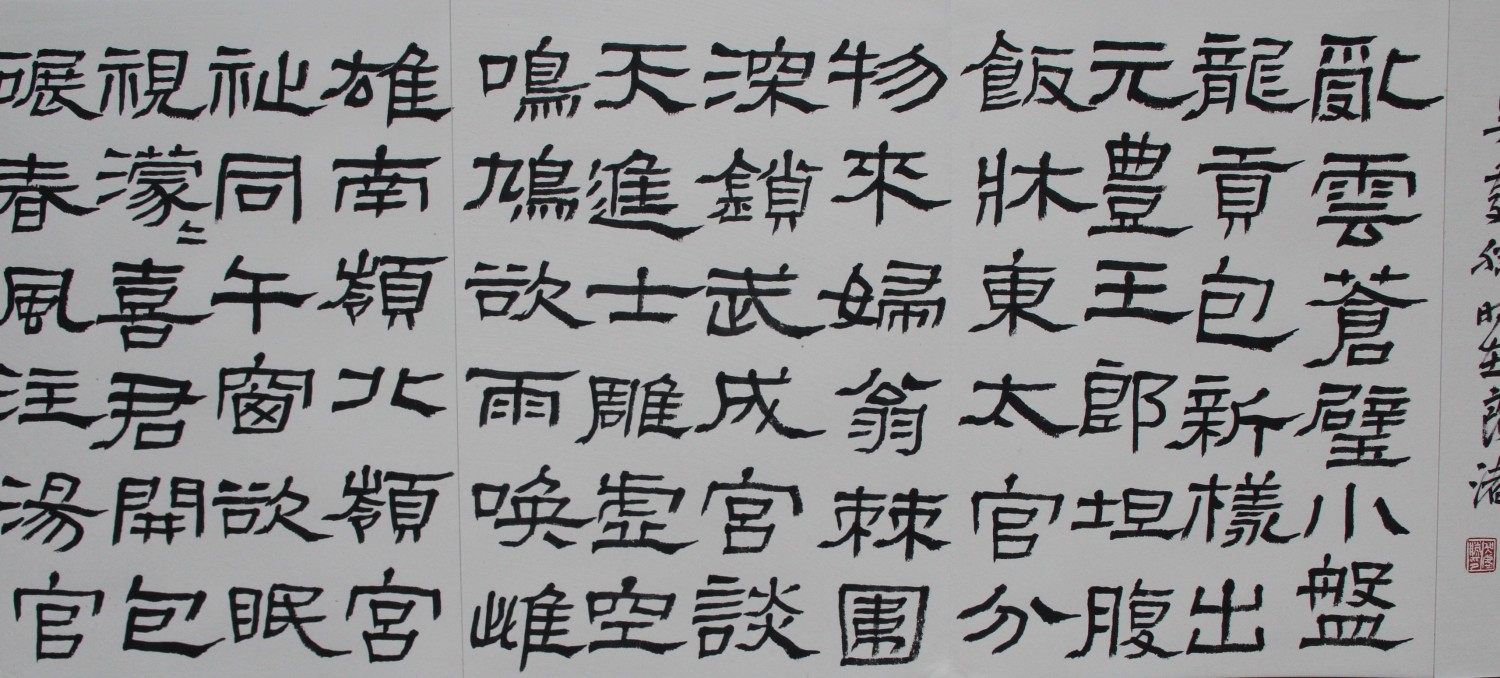 亂雲蒼璧小盤
龍貢包新樣出
元豊王郎坦腹
飯牀東太官分
物來婦翁棘圍
深鎖武成宮談
天進士雕虛空
鳴鳩欲雨喚雌
雄南嶺北嶺宮
祉同午窗欲眠
視濛々喜君開包
碾春風注湯官